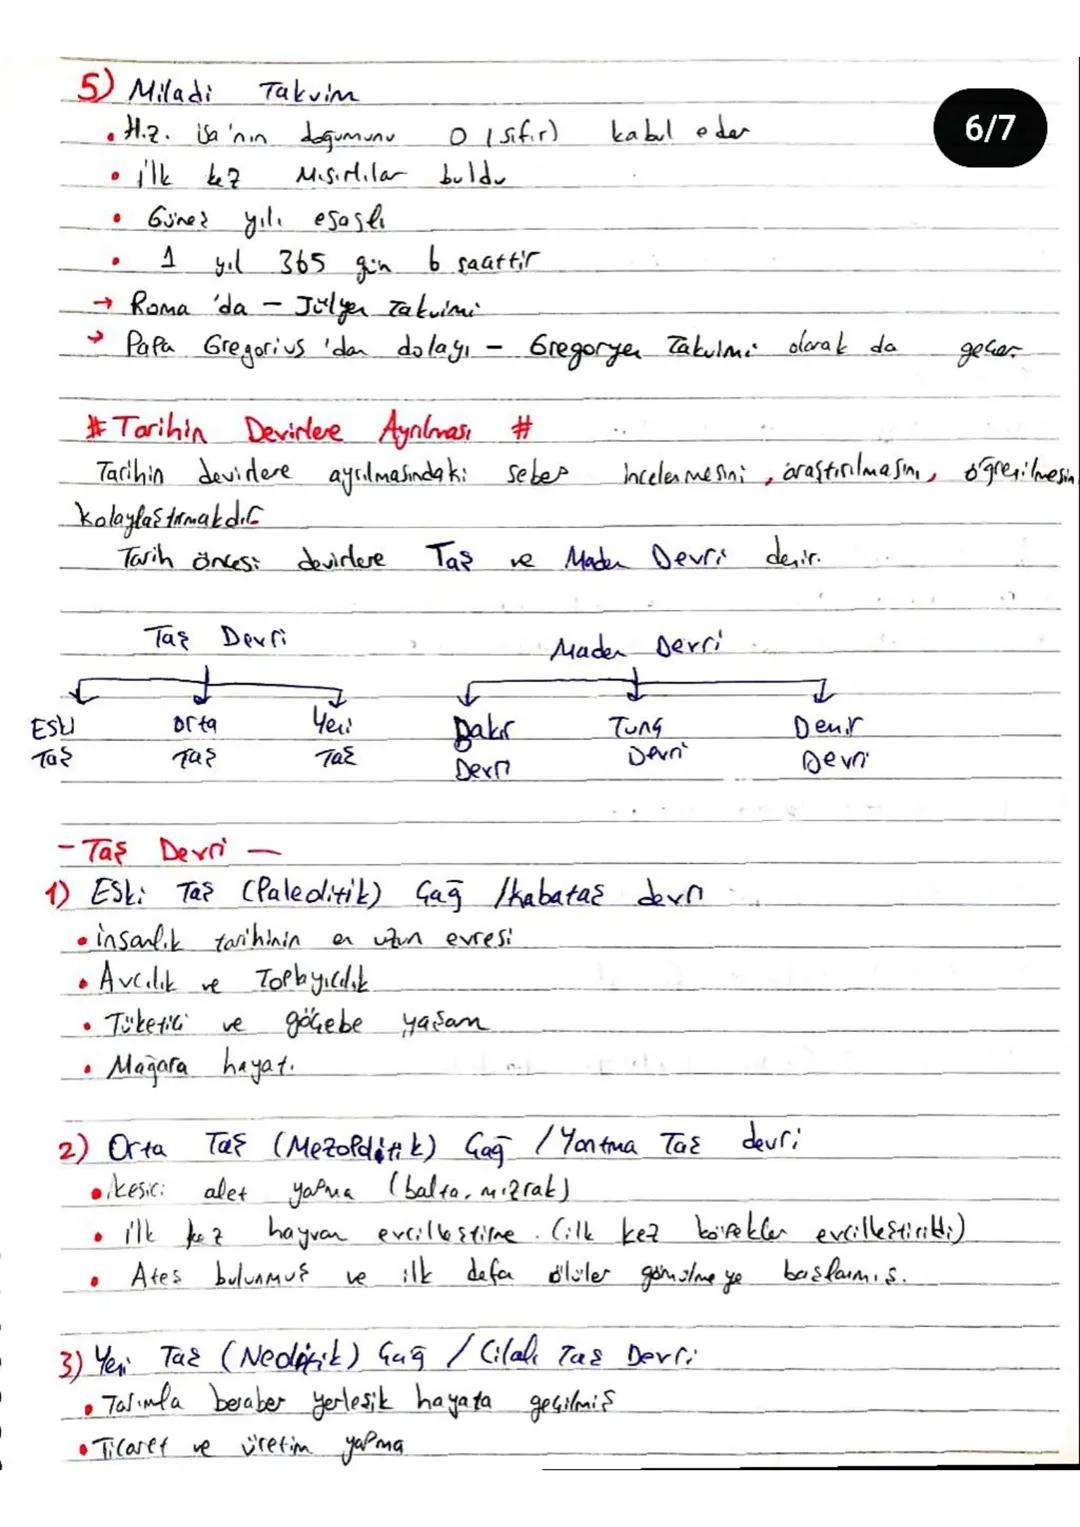 5) Miladi Takvim
6/7
• Hz. isa'nın doğumunu 0 (sıfır) kabul eder
• ilk kez Mısırlılar buldu
• Güneş yılı esaslı
• 1 yıl 365 gün 6 saattir
→ Roma'da – Jülyen Takvimi
→ Papa Gregorius'dan dolayı – Gregoryen Takvimi olarak da geçer.
# Tarihin Devirlere Ayrılması #
Tarihin devirlere ayrılmasındaki sebep incelenmesini, araştırılmasını, öğrenilmesin
kolaylaştırmakdır
Tarih öncesi devirlere Taş ve Maden Devri denir.
Taş Devri Maden Devri
Eski Orta Yeni Bakır Tunç Demir
Taş Taş Taş Devri Devri Devri
- Taş Devri -
1) Eski Taş (Paleolitik) Çağ / kabataş devri
• insanlık tarihinin en uzun evresi
• Avcılık ve Toplayıcılık
• Tüketici ve göçebe yaşam
• Mağara hayatı
2) Orta Taş (Mezolitik) Çağ / Yontma Taş devri
• kesici alet yapma (balta, mızrak)
• ilk kez hayvan evcilleştirme. (ilk kez köpekler evcilleştirildi)
• Ateş bulunmuş ve ilk defa ölüler gömülmeye başlanmış.
3) Yeni Taş (Neolitik) Çağ / Cilalı Taş Devri
• Tarımla beraber yerleşik hayata geçilmiş
• Ticaret ve üretim yapma